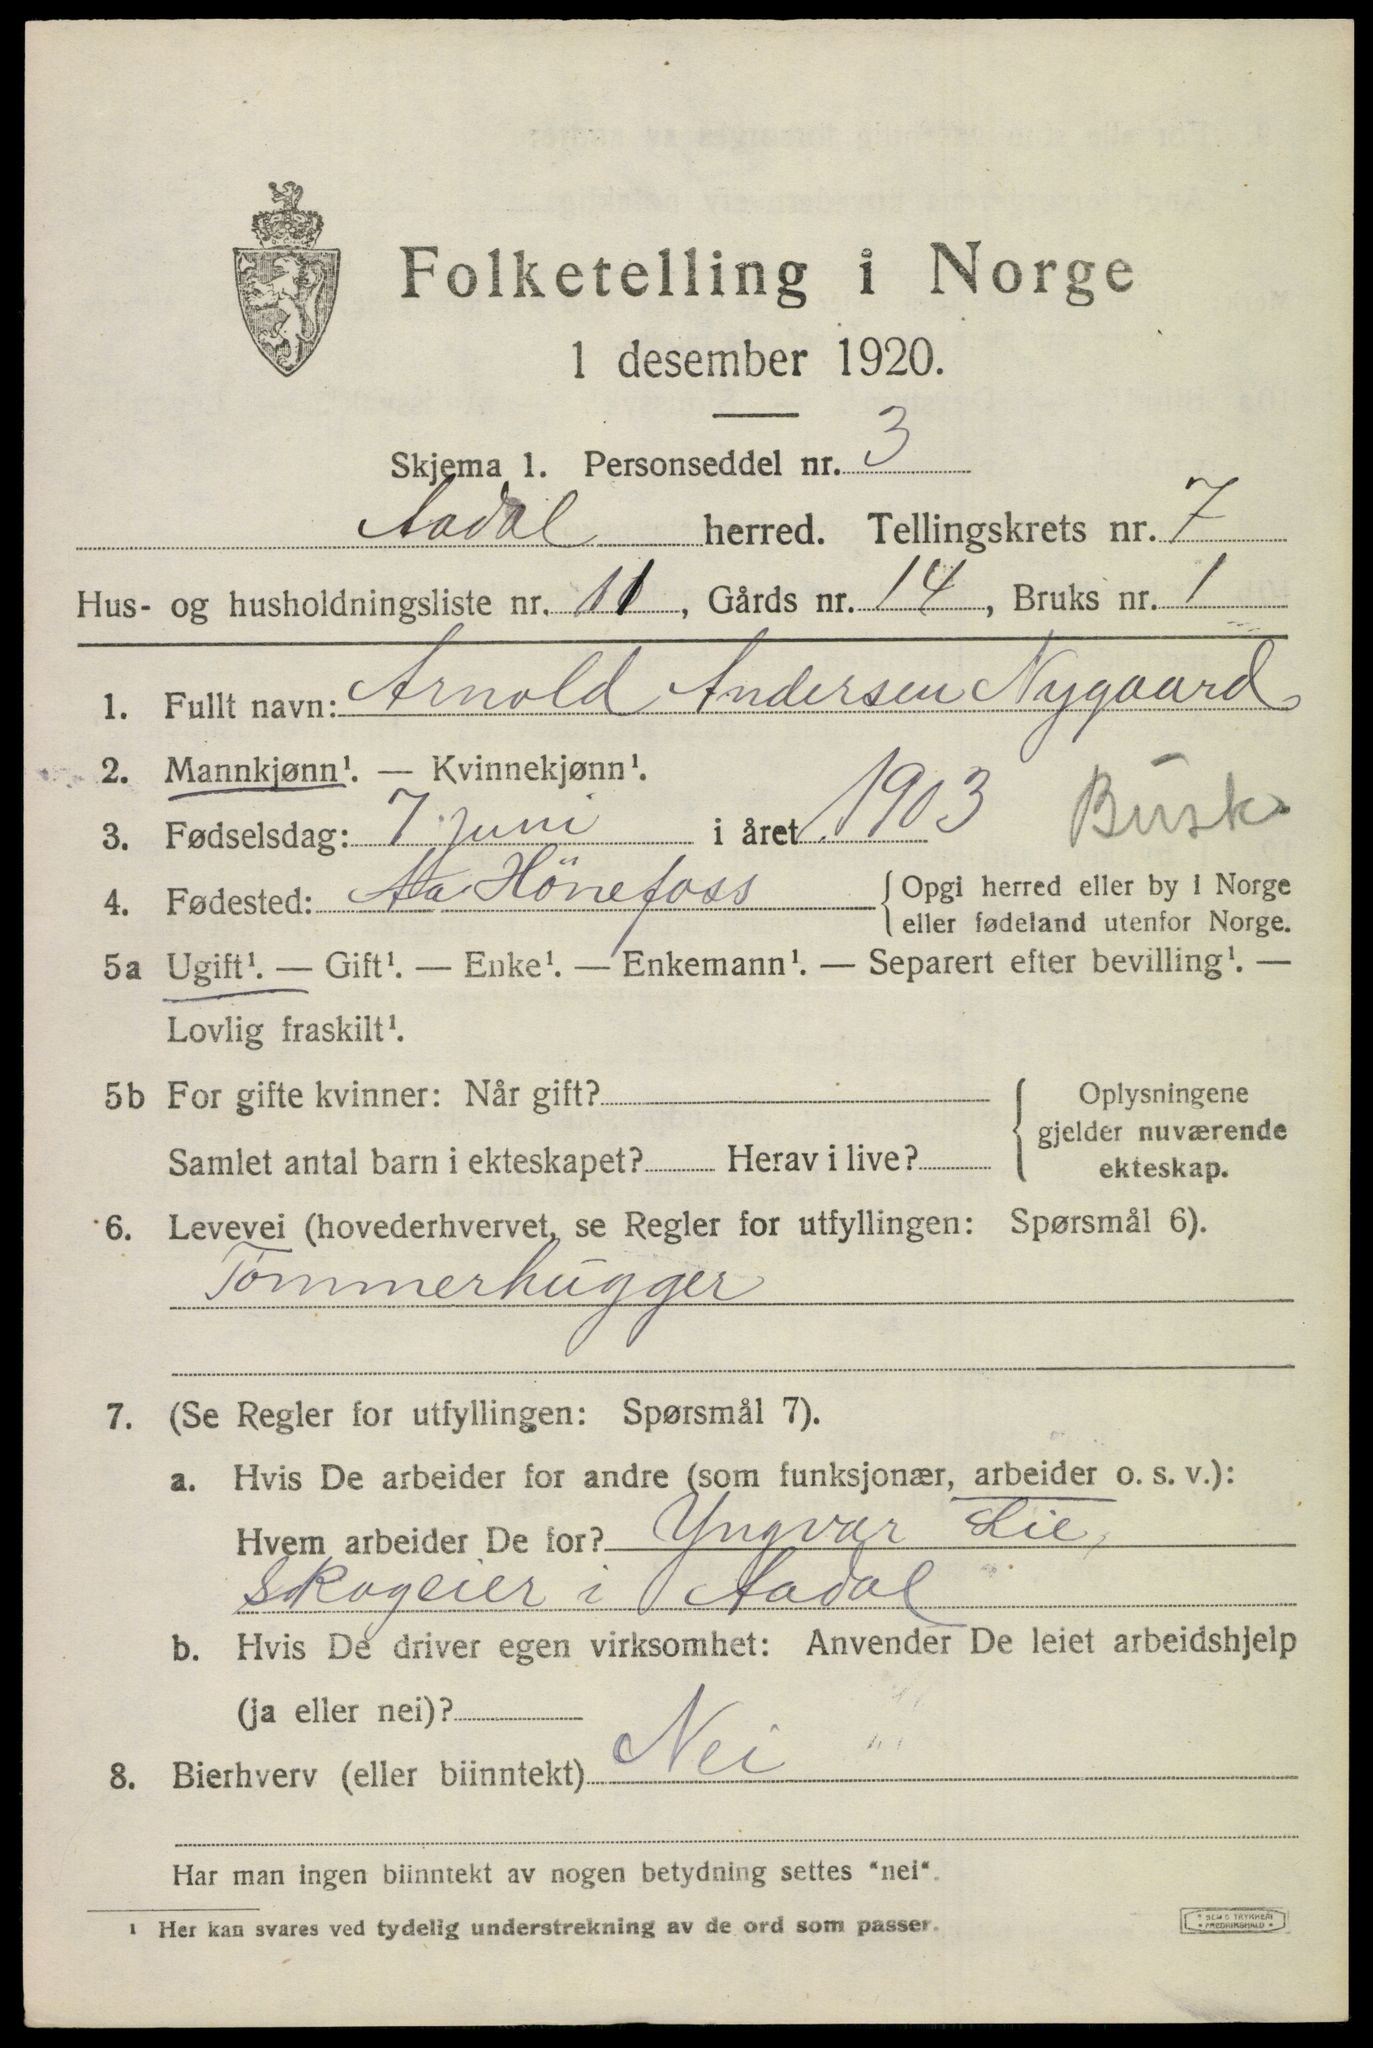 Folketelling i Norge
1 desember 1920.
Skjema 1. Personseddel nr. 3
Aadal herred. Tellingskrets nr. 7
Hus- og husholdningsliste nr. 11, Gårds nr. 14, Bruks nr. 1
1. Fullt navn: Arnold Andersen Nygaard
2. Mannkjønn¹. — Kvinnekjønn¹.
3. Fødselsdag: 7 juni i året 1903 Busk
4. Fødested: Aa Hönefoss { Opgi herred eller by i Norge
eller fødeland utenfor Norge.
5a Ugift¹. — Gift¹. — Enke¹. — Enkemann¹. — Separert efter bevilling¹. —
Lovlig fraskilt¹.
5b For gifte kvinner: Når gift? { Oplysningene
gjelder nuværende
Samlet antal barn i ekteskapet? Herav i live? ekteskap.
6. Levevei (hovederhvervet, se Regler for utfyllingen: Spørsmål 6).
Tömmerhugger
7. (Se Regler for utfyllingen: Spørsmål 7).
a. Hvis De arbeider for andre (som funksjonær, arbeider o. s. v.):
Hvem arbeider De for? Yngvar Lie,
Skogeier i Aadal
b. Hvis De driver egen virksomhet: Anvender De leiet arbeidshjelp
(ja eller nei)?
8. Bierhverv (eller biinntekt) Nei
Har man ingen biinntekt av nogen betydning settes "nei".
¹ Her kan svares ved tydelig understrekning av de ord som passer.
SEM & TRYKKERI
FREDRIKSHALD